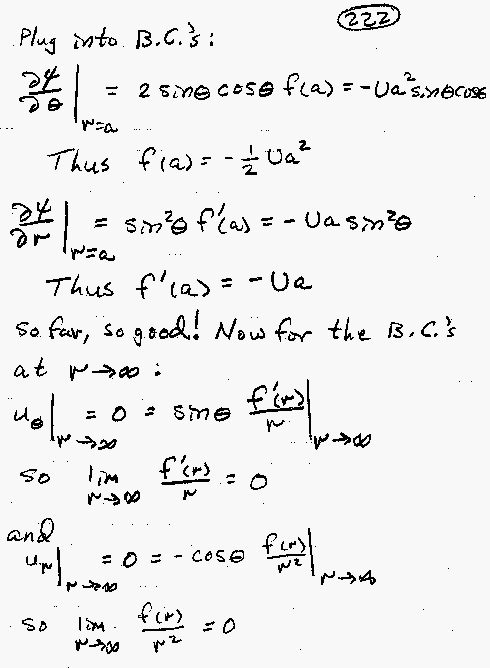 222
Plug into B.C.'s:
∂ψ/∂θ |r=a = 2 sinθ cosθ f(a) = -Ua² sinθ cosθ
Thus f(a) = -½ Ua²
∂ψ/∂r |r=a = sin²θ f'(a) = -Ua sin²θ
Thus f'(a) = -Ua
So far, so good! Now for the B.C.'s
at r→∞ :
uθ |r→∞ = 0 = sinθ f'(r)/r |r→∞
so lim r→∞ f'(r)/r = 0
and
ur |r→∞ = 0 = -cosθ f(r)/r² |r→∞
so lim r→∞ f(r)/r² = 0